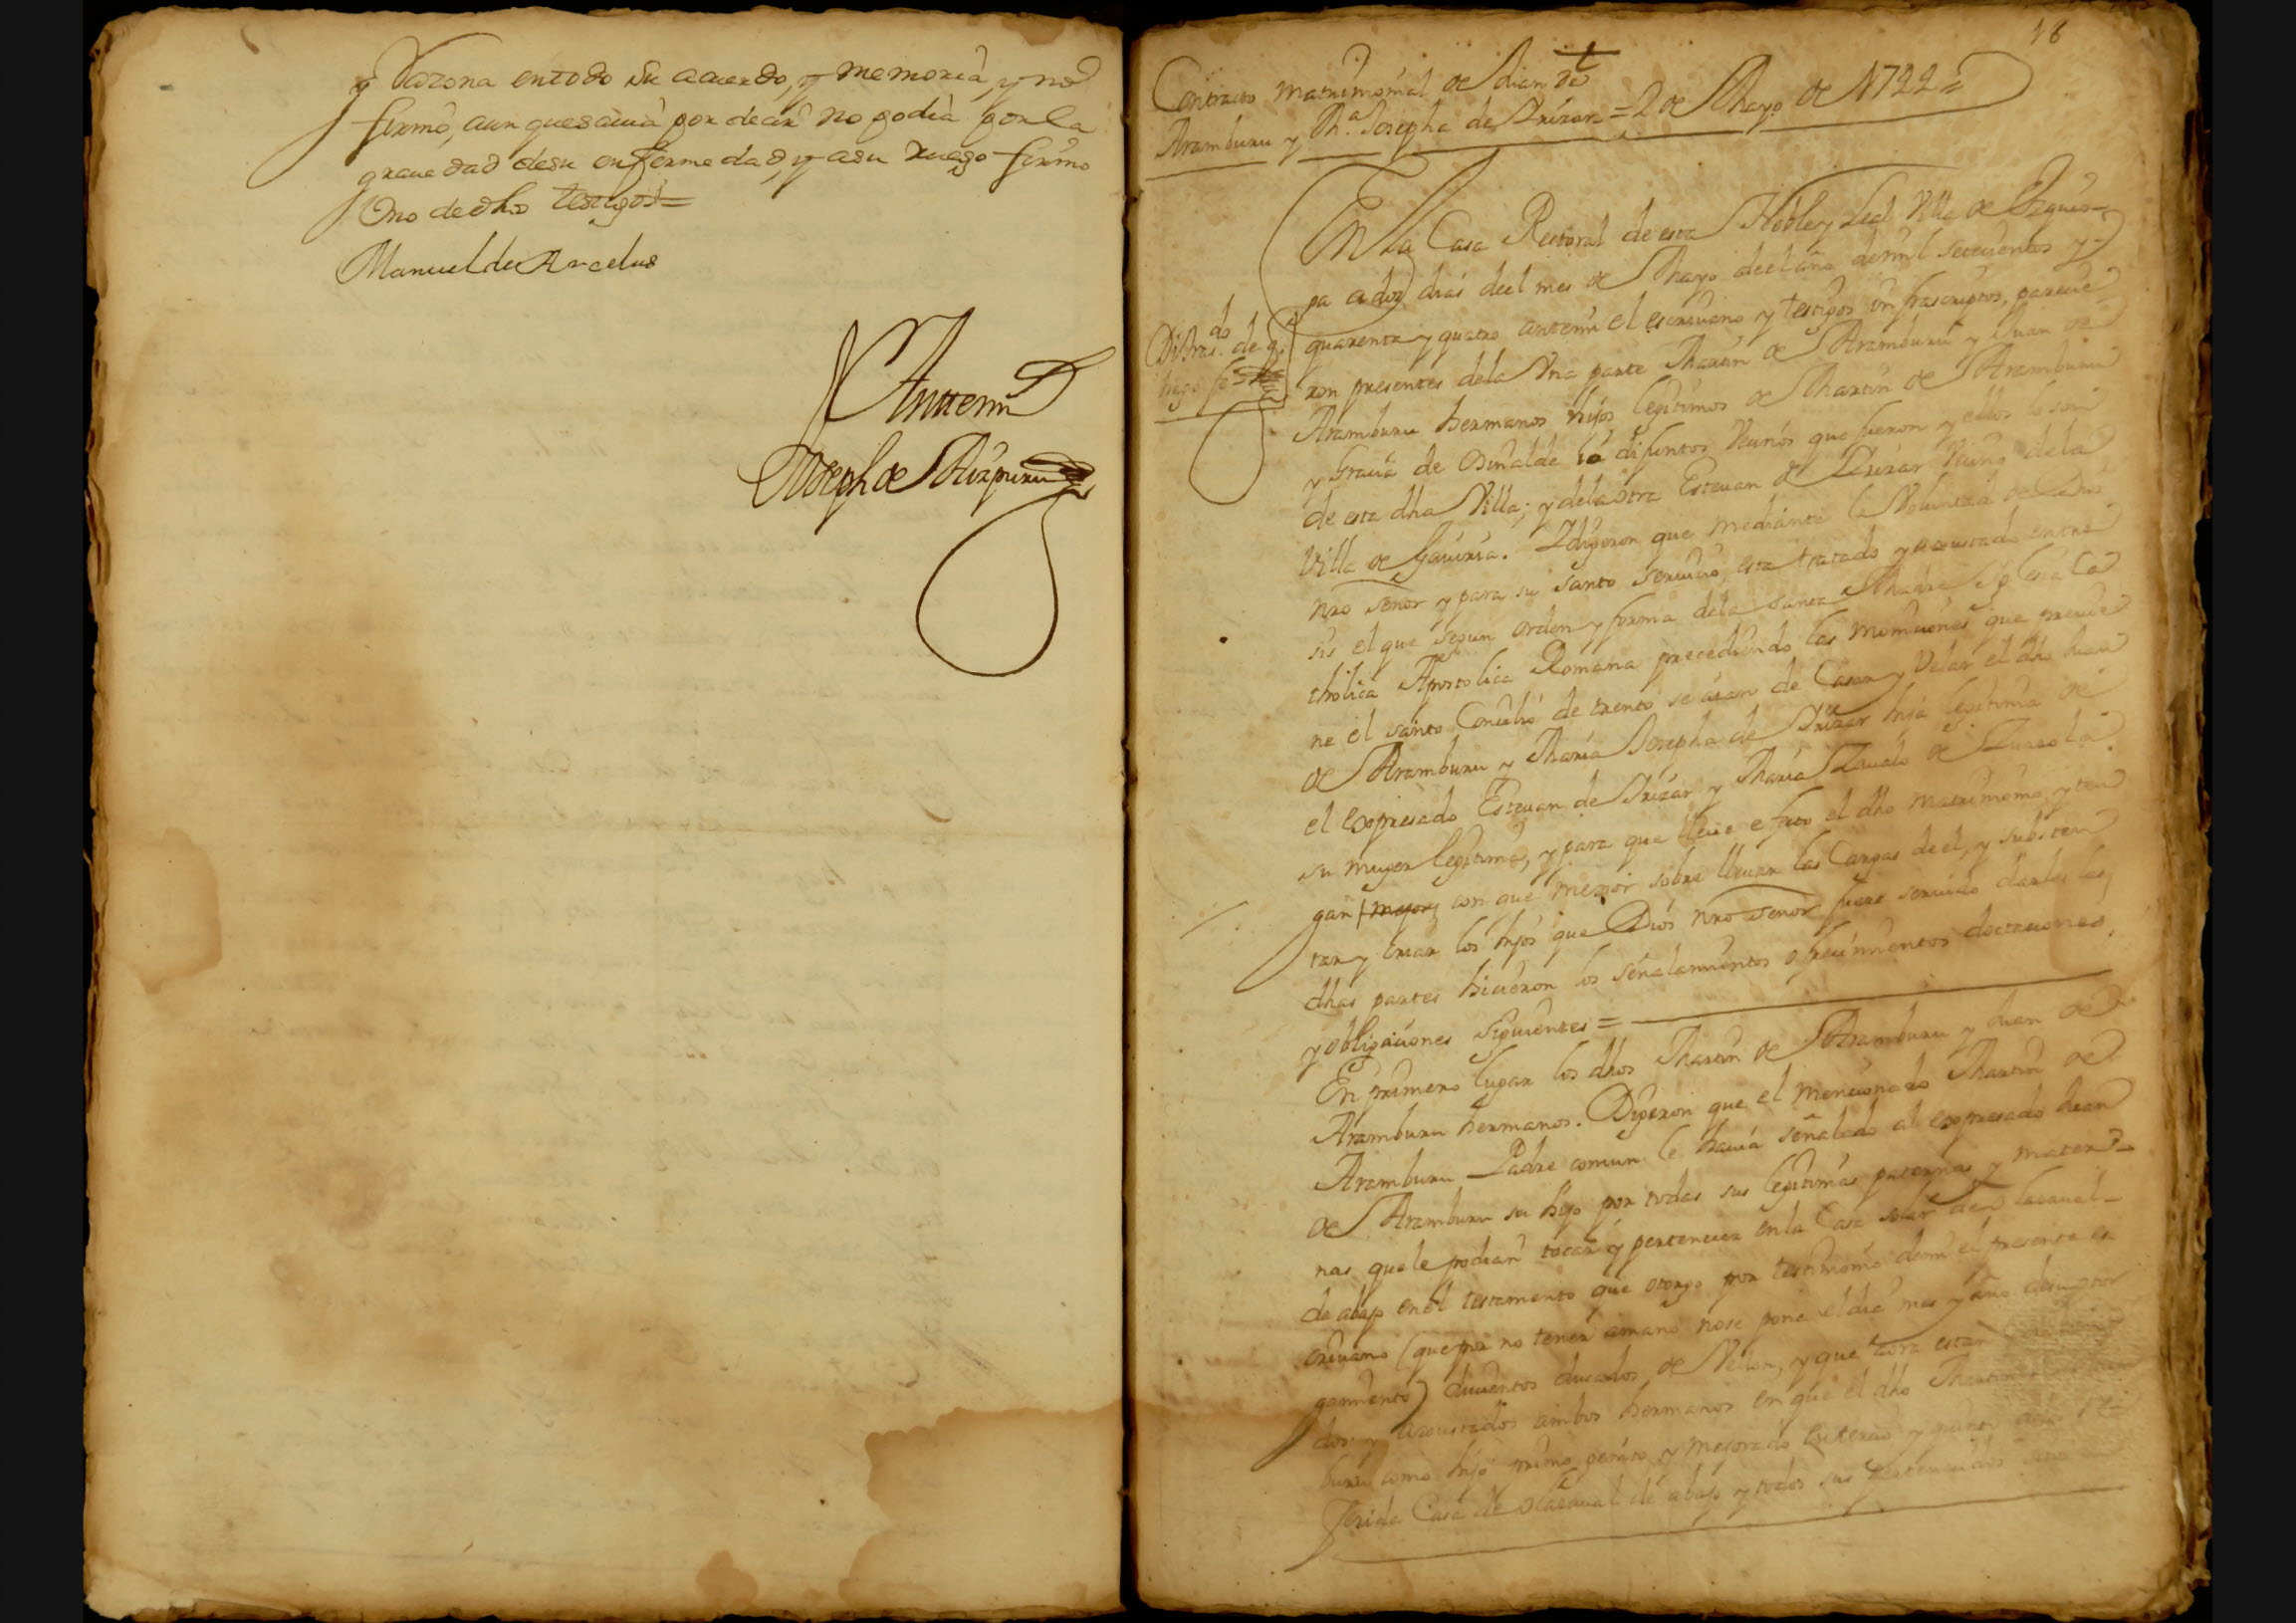 y Varona en todo su acuerdo, y memoria, y no
firmó, aunque savia por decir no podia por la
gravedad de su enfermedad, y a su ruego firmo
Uno de dhos testigos=
Manuel de Arcelus
Antemi
Joseph de Aizpuru
18
Contracto matrimonial de Juan de
Aramburu y Mª Josepha de Irizar = 2 de Mayo de 1744=
En la Casa Rectoral de esta Noble y Leal Villa de Ezquio-
ga a dos dias deel mes de Mayo deel año de mil setecientos y
quarenta y quatro antemi el escrivano y testigos infrascriptos, parecie
ron presentes dela Una parte Martin de Aramburu y Juan de
Aramburu hermanos hijos legitimos de Martin de Aramburu
y Gracia de Osinalde ia difuntos Vecinos que fueron y ellos lo son
de esta dha Villa; y dela otra Estevan de Irizar Vecino dela
Villa de Gaviria. I dijeron que mediante la Voluntad de Dios
nro señor y para su santo servicio, esta tratado y ajustado entre
sis el que segun orden y forma dela santa Madre Iglesia Ca
tholica Apostolica Romana precediendo las moniciones que previe
ne el santo Concilio de trento se aian de Casar y Velar el dho Juan
de Aramburu y Maria Josepha de Irizar hija legitima de
el expresado Estevan de Irizar y Maria de Zurrola
su muger legitima, y para que lleve efecto el dho matrimonio y ten
gan mejor con que mejor sobre llevar las Cargas de el, y substen
tar y criar los hijos que Dios nro señor fuere servido darles las
dhas partes hicieron los señalamientos ofrecimientos dotaciones,
y obligaciones siguientes =
En primero lugar los dhos Martin de Aramburu y Juan de
Aramburu hermanos. Dijeron que el mencionado Martin de
Aramburu Padre comun le havia señalado al expresado Juan
de Aramburu su hijo por todas sus legitimas paternas y mater-
nas que le podian tocar y pertenecer en la Casa solar de
de abajo en el testamento que otorgo por testimonio demi el presente es
crivano (que por no tener amano nose pone el dia mes y año de su otor
gamiento) ducientos ducados de Vellon, y que aora estan
dos y ajustados ambos hermanos en que el dho Martin
buru como hijo primo genito y mejorado en tercio y quinto
ferida Casa de de abajo y todos sus pertenecidos